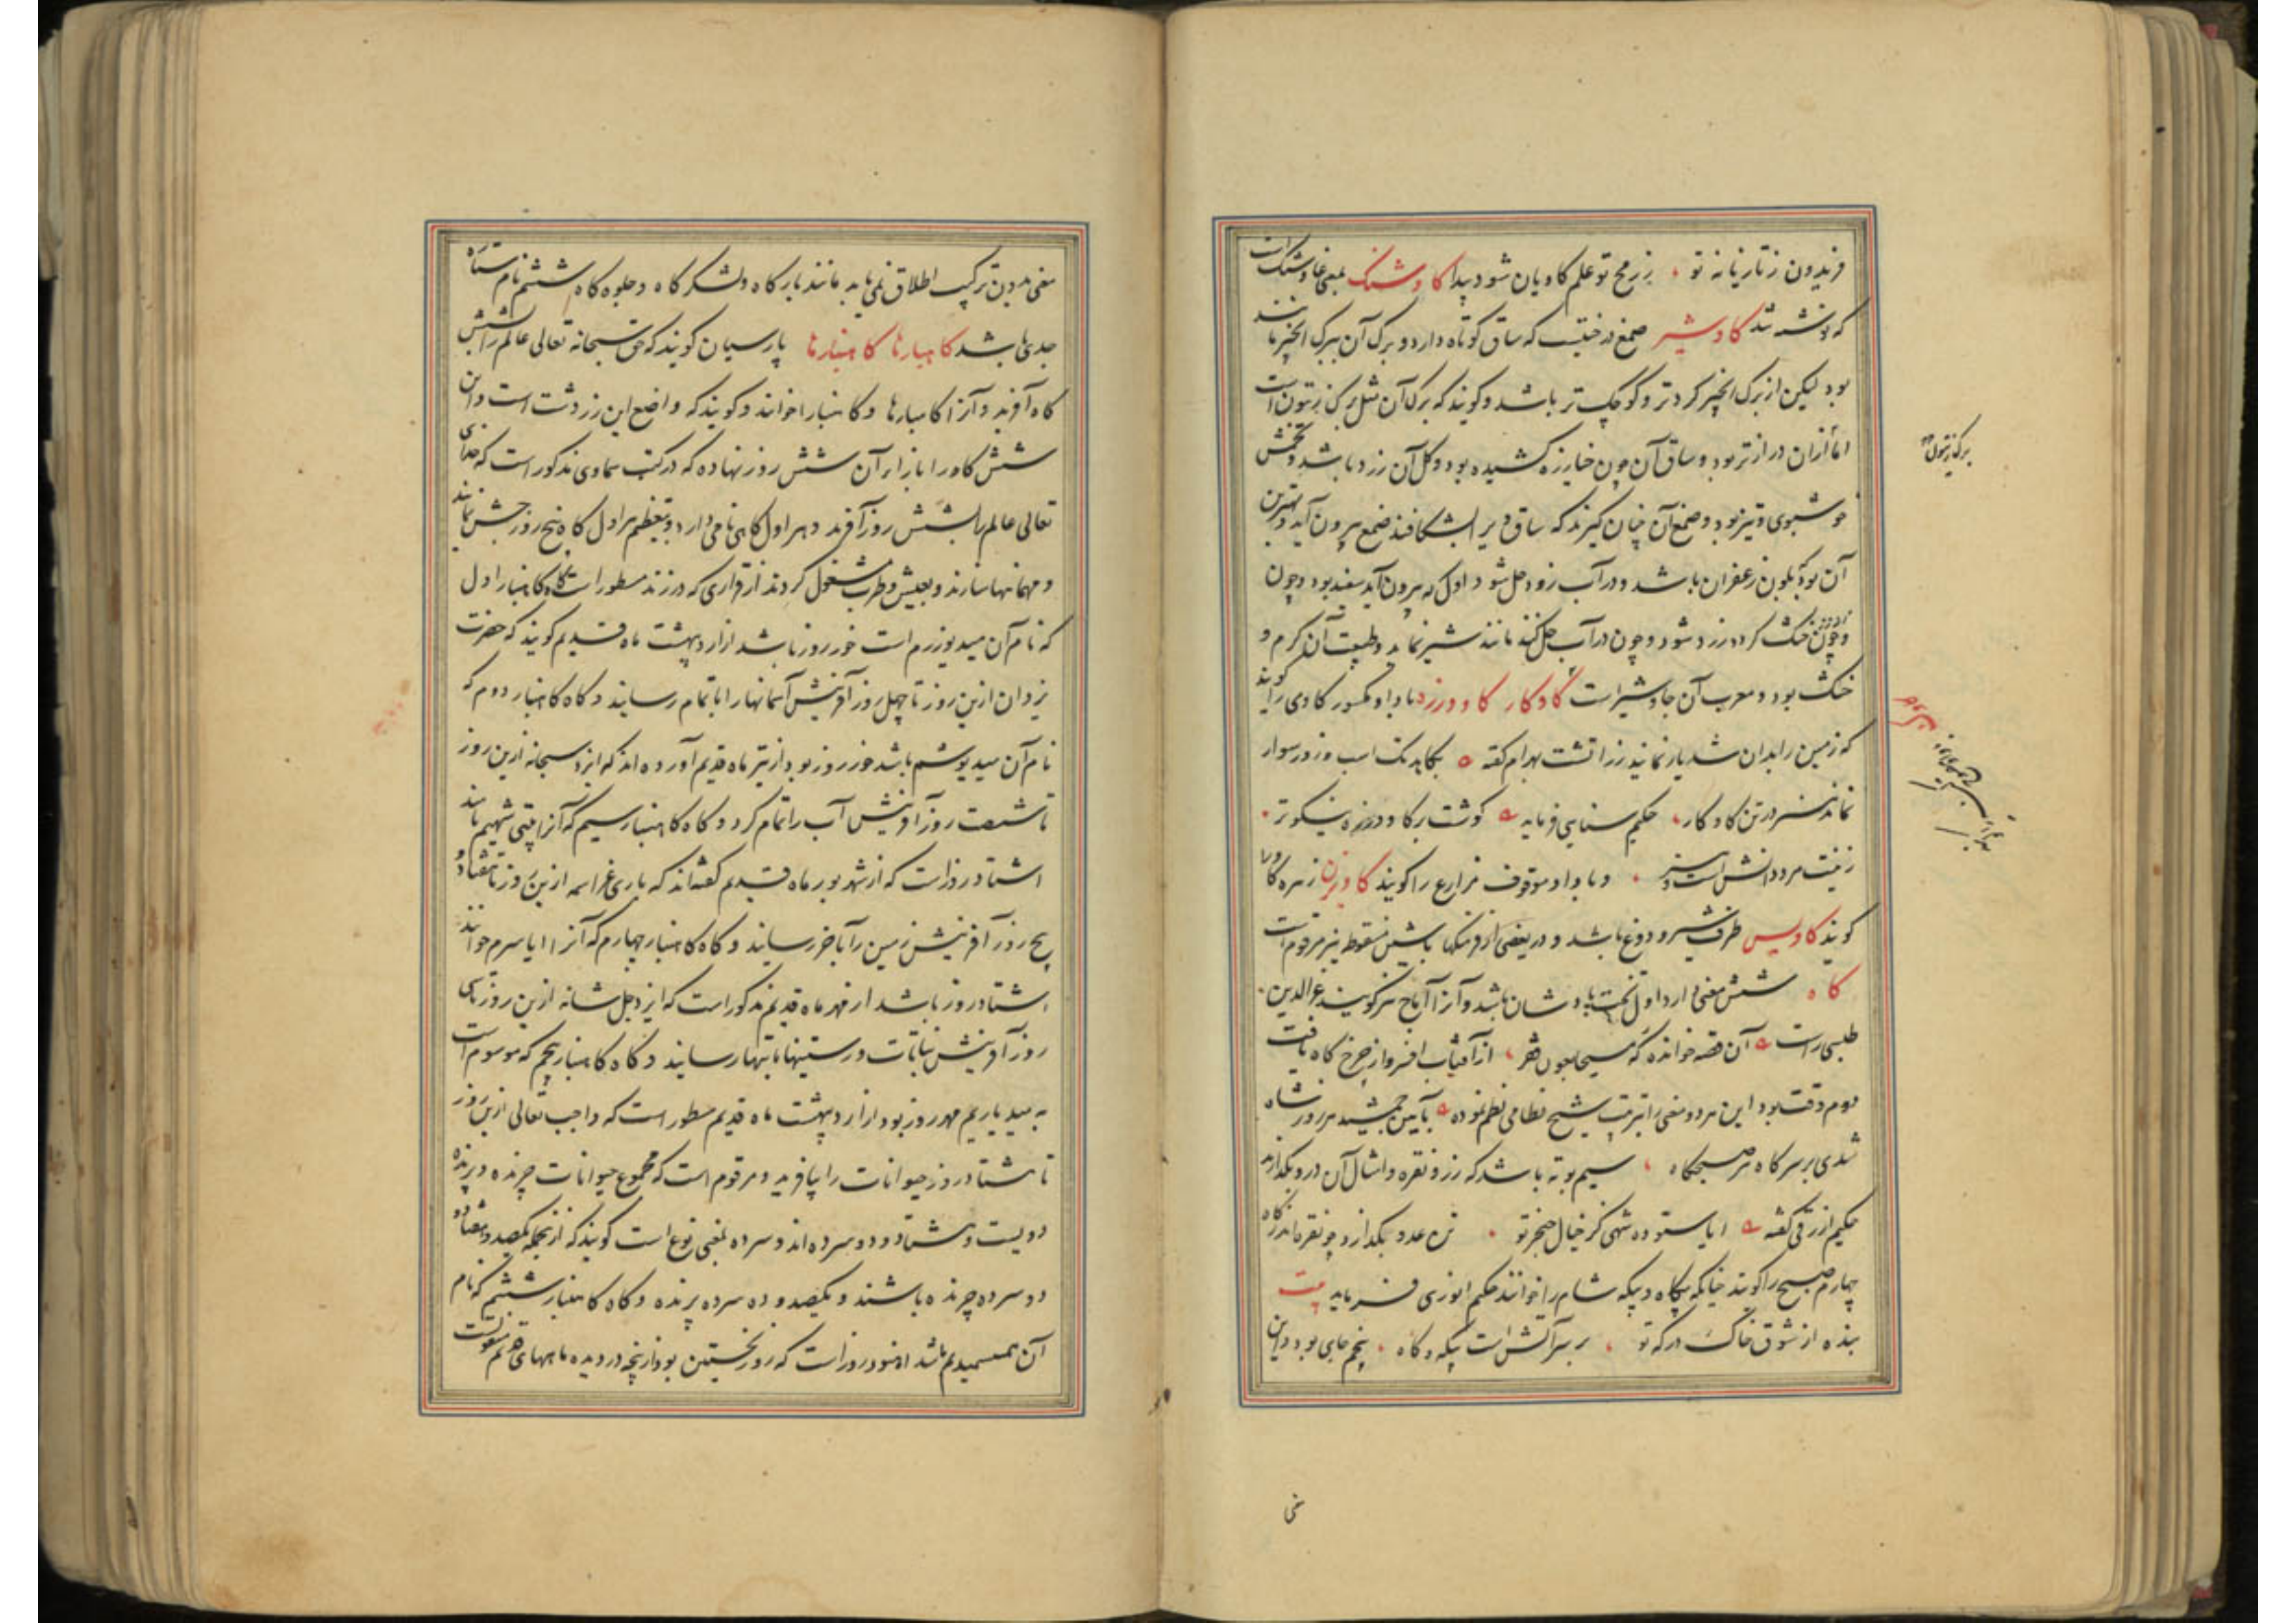 فریدون ز تازیانه تو ، ز رمح تو علم کاویان شود پیدا کاوشنک بمعنی غاوشنک است
که نوشته شد کاوشیر صمغ درختیست که ساق کوتاه دارد و برک آن ببرک انجیر مانند
بود لیکن از برک انجیر کردتر و کوچک تر باشد و کویند که برک آن مثل برک زیتون است
اما ازان درازتر بود و ساق آن چون خیارزه کشیده بود و کل آن زرد باشد و تخمش
خوشبوی و تیز بود و صمغ آن چنان کیرند که ساق ویرا بشکافند صمغ بیرون آید و بهترین
آن بود که بلون زعفران باشد و در آب زود حل شود و اول که بیرون آید سفید بود و چون
و چون خشک کردد زرد شود و چون در آب حل کنند مانند شیر نماید و طبیعت آن کرم و
خشک بود و معرب آن جاوشیر است کاوکار کاوورزد با واو مکسور کاوی را کویند
که زمین را بدان شدیار نمایند زراتشت بهرام کفته بکاید تک اسب و زور سوار
نماند نسر در تن کاو کار ، حکیم سنایی فرماید کوشت بر کاو ورزه نیکوتر
زینت مرد دانش است و هنر . و با واو موقوف مزارع را کویند کاویزن زهره کاو را
کویند کاویس ظرف شیر و دوغ باشد و در بعضی از فرهنکها باشین منقوطه نیز مرقوم است
کاه شش معنی دارد اول تخت پادشان باشد و آنرا آماج نیز کویند عزالدین
طبسی راست آن قصه خوانده که مسیحا بعون فقر ، از آفتاب افسر و از چرخ کاه یافت
دوم وقت بود این هر دو معنی را بترتیب شیخ نظامی نظم نموده بآیین جمشید هر روز شاه
شدی بر سر کاه هر صبحکاه ، سیم بوته باشد که زر و نقره و امثال آن درو بکدازند
حکیم ازرقی کفته ایا ستوده شهی کز خیال خنجر تو . تن عدو بکدازد چو نقره اندر کاه
چهارم صبح را کویند چنانکه پکاه و بیکه شام را خوانند حکیم انوری فرماید بیت
بنده از شوق خاک درکه تو ، بر سر آتش است بیکه و کاه . پنجم جای بود و این
برک زیتون
معنی
معنی بدون ترکیب اطلاق نمی یابد مانند بارکاه و لشکرکاه و جلوه کاه ششم نام ستاره
جدی باشد کاهبارها کاهنبارها پارسیان کویند که حق سبحانه تعالی عالم را بشش
کاه آفرید و آنرا کاهبارها و کاهنبارها خوانند و کویند که واضع این زردشت است و این
شش کاه را بازار آن شش روز نهاده که در کتب سماوی مذکور است که خدای
تعالی عالم را بشش روز آفرید و هر اول کاهی نامی دارد و بتعظیم هر اول کاه پنج روز جشن نمایند
و مهمانیها سازند و بعیش و طرب مشغول کردند از قراری که در زند مسطور است کاه کاهنبار اول
که نام آن میدیوزرم است خور روز باشد از اردیبهشت ماه قدیم کویند که حضرت
یزدان ازین روز تا چهل روز آفرینش آسمانها را باتمام رسانید و کاه کاهنبار دوم که
نام آن میدیوشم باشد خور روز بود از تیر ماه قدیم آورده اند که ایزد سبحانه ازین روز
تا شصت روز آفرینش آب را تمام کرد و کاه کاهنبار سیم که آنرا پیتی شهیم نامند
اشتاد روز است که از شهریور ماه قدیم کفته اند که باری عزاسمه ازین روز تا هفتاد و
پنج روز آفرینش زمین را بآخر رسانید و کاه کاهنبار چهارم که آنرا ایاسرم خوانند
اشتاد روز باشد از مهر ماه قدیم مذکور است که ایزد جل شانه ازین روز تا سی
روز آفرینش نباتات و رستنیها بانتها رسانید و کاه کاهنبار پنجم که موسوم است
به میدیاریم مهر روز بود از اردیبهشت ماه قدیم مسطور است که واجب تعالی ازین روز
تا هشتاد روز حیوانات را بیافرید و مرقوم است که مجموع حیوانات چرنده و پرنده
دویست و هشتاد و دو سرده اند و سرده بمعنی نوع است کویند که از آنجمله یکصد و هفتاد و
دو سرده چرنده باشند و یکصد و ده سرده پرنده و کاه کاهنبار ششم که نام
آن همسمیدیم باشد اهنود روز است که روز نخستین بود از پنجه دزدیده با بهای هم منقولست